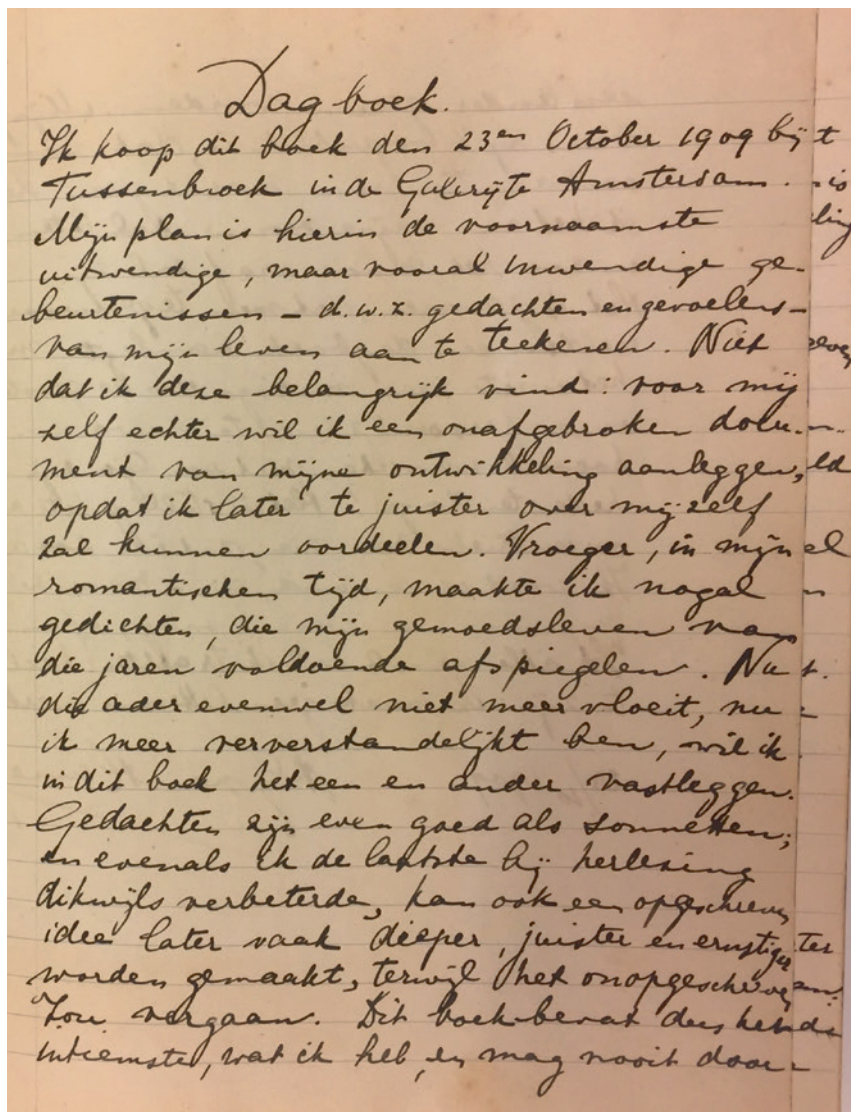 Dagboek.
Ik koop dit boek den 23en October 1909 bij
Tussenbroek in de Galerij te Amsterdam.
Mijn plan is hierin de voornaamste
uitwendige, maar vooral inwendige ge-
beurtenissen – d.w.z. gedachten en gevoelens –
van mijn leven aan te teekenen. Niet
dat ik deze belangrijk vind: voor mij
zelf echter wil ik een onafgebroken docu-
ment van mijne ontwikkeling aanleggen,
opdat ik later te juister over mijzelf
zal kunnen oordeelen. Vroeger, in mijn
romantischen tijd, maakte ik nogal
gedichten, die mijn gemoedsleven van
die jaren voldoende afspiegelen. Nu
die ader evenwel niet meer vloeit, nu
ik meer ververstandelijkt ben, wil ik
in dit boek het een en ander vastleggen.
Gedachten zijn even goed als sonnetten;
en evenals ik de laatste bij herlezing
dikwijls verbeterde, kan ook een opgeschreven
idee later vaak dieper, juister en ernstiger
worden gemaakt, terwijl het onopgeschreven
zou vergaan. Dit boek bevat dus het
intiemste, wat ik heb, en mag nooit door